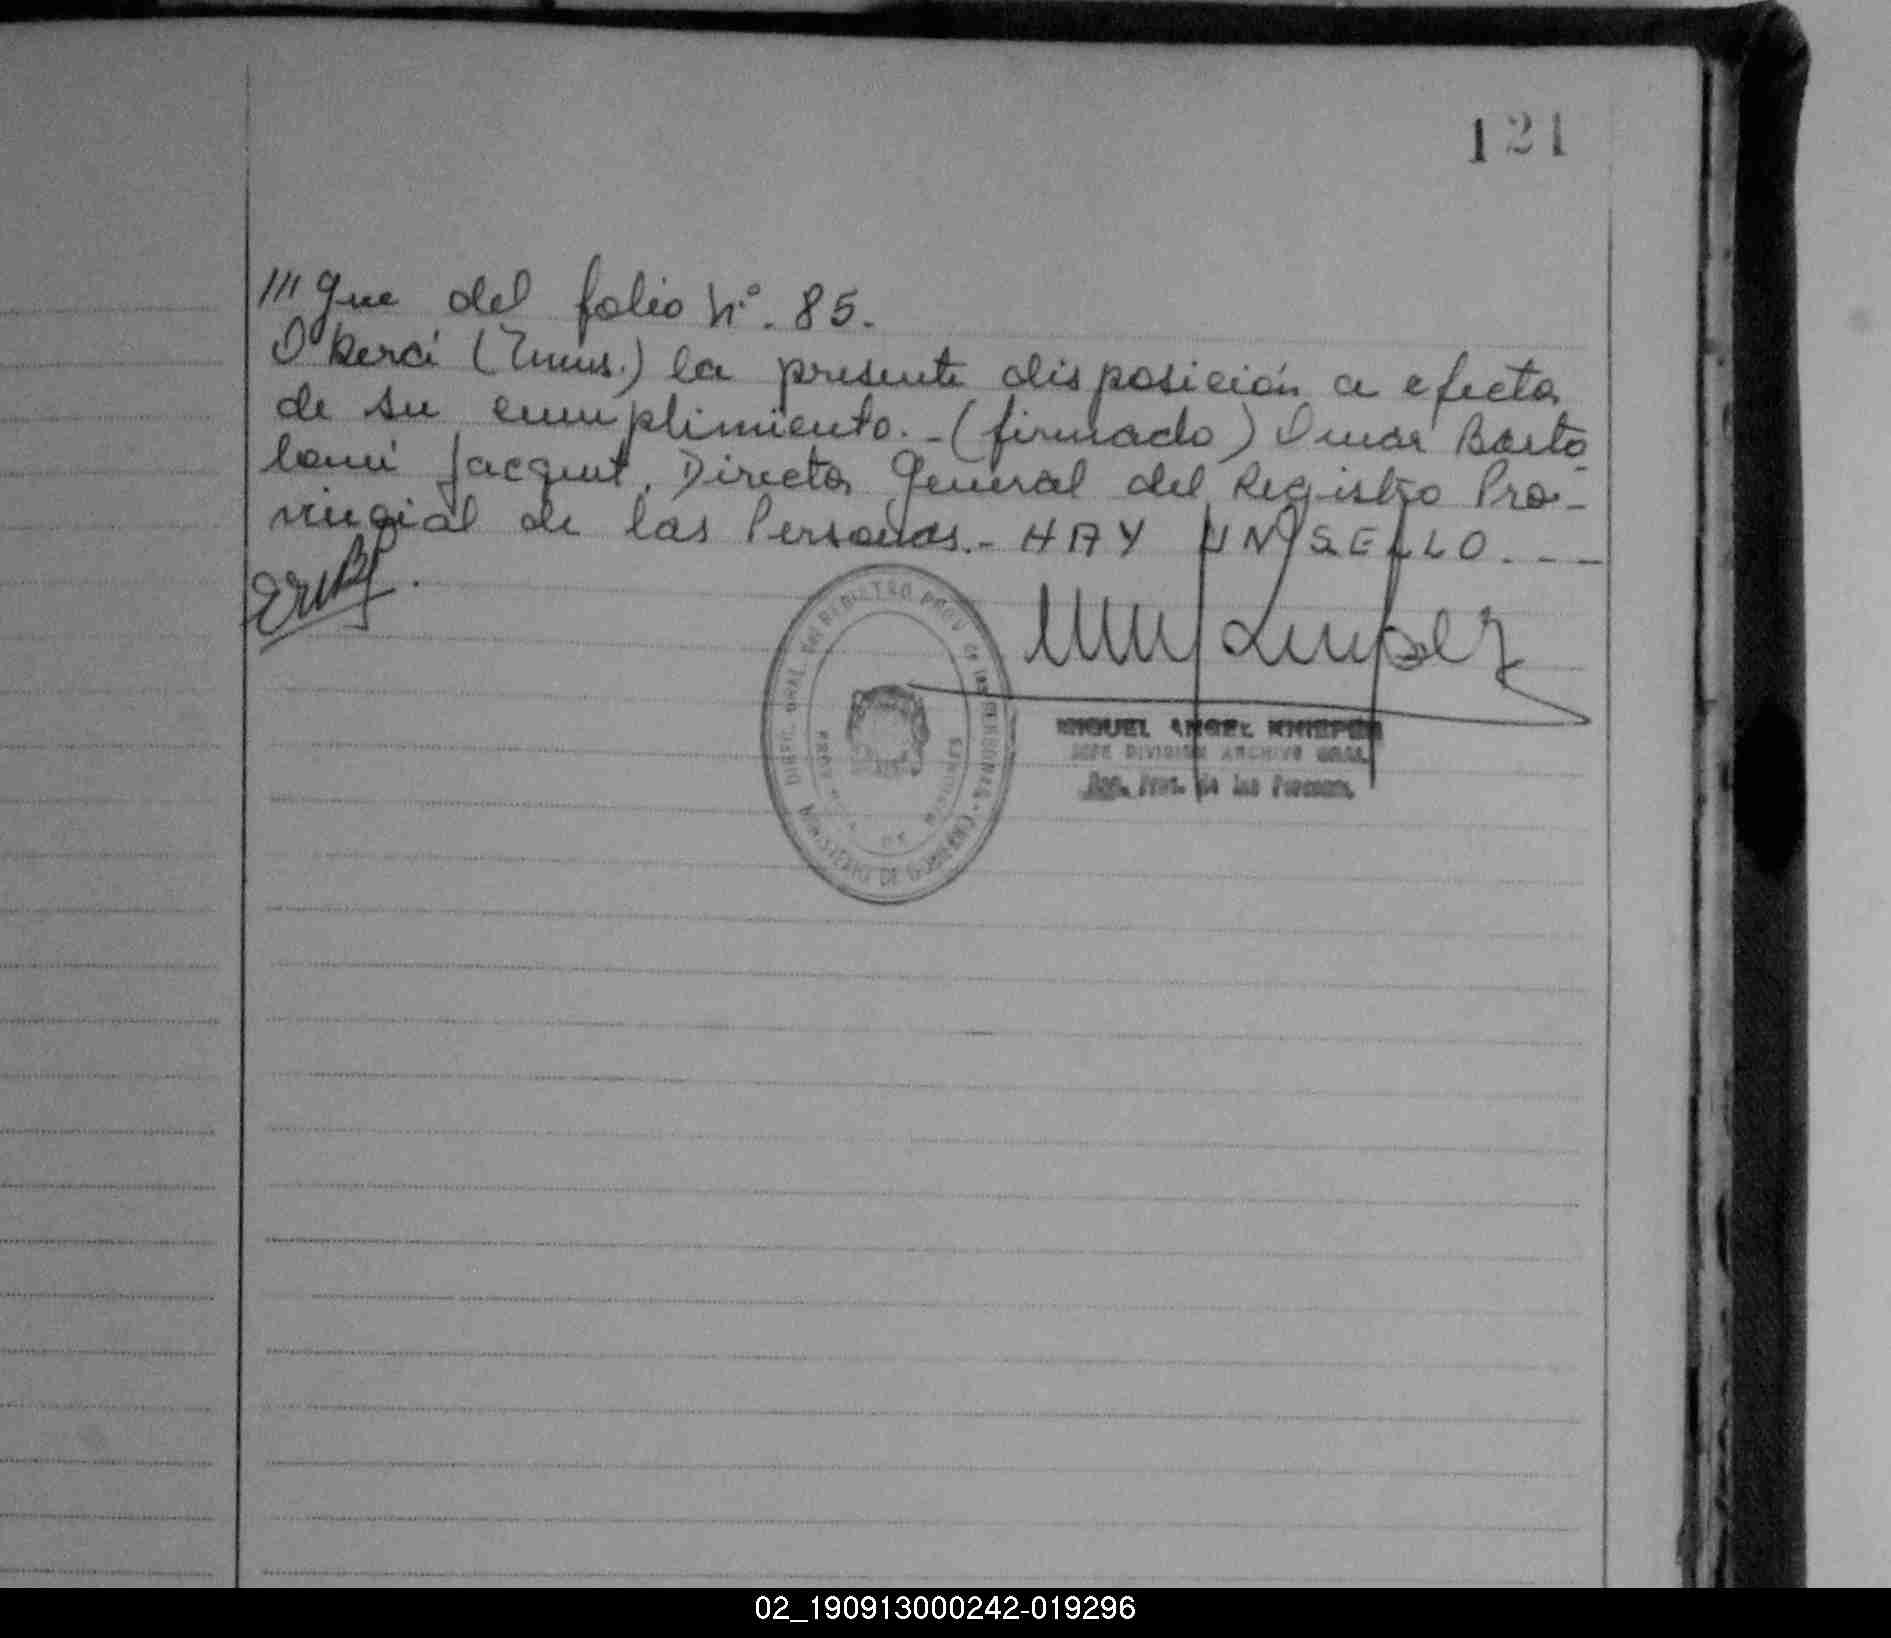 121
///gue del folio Nº. 85.
Oberá (Mnes.) la presente disposición a efecto
de su cumplimiento.-(firmado) Omar Barto
lomé Jacquet, Director General del Registro Pro-
vincial de las Personas.- HAY UN SELLO.---
DIREC. GRAL. DEL REGISTRO PROV. DE LAS PERSONAS
MINISTERIO DE GOBIERNO
PROVINCIA DE MISIONES
MIGUEL ANGEL
JEFE DIVISION ARCHIVO GRAL.
Reg. Prov. de las Personas
02_190913000242-019296